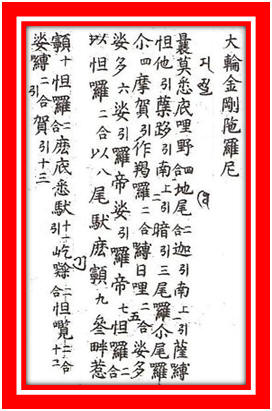 大輪金剛陁羅尼
曩莫悉底哩野四合地尾二合迦引南上一引薩縛
怛他引蘖路引南引二暗引三尾羅尒尾羅
尒四摩賀引作羯羅二合縛日哩二合五娑多
娑多六娑引羅帝娑引羅帝七怛羅二合
以怛羅二合以八尾馱麽顊九叄畔惹
顊十怛羅二合麽底悉馱引十一屹合怛覽二合十二
娑縛二合引賀引十三